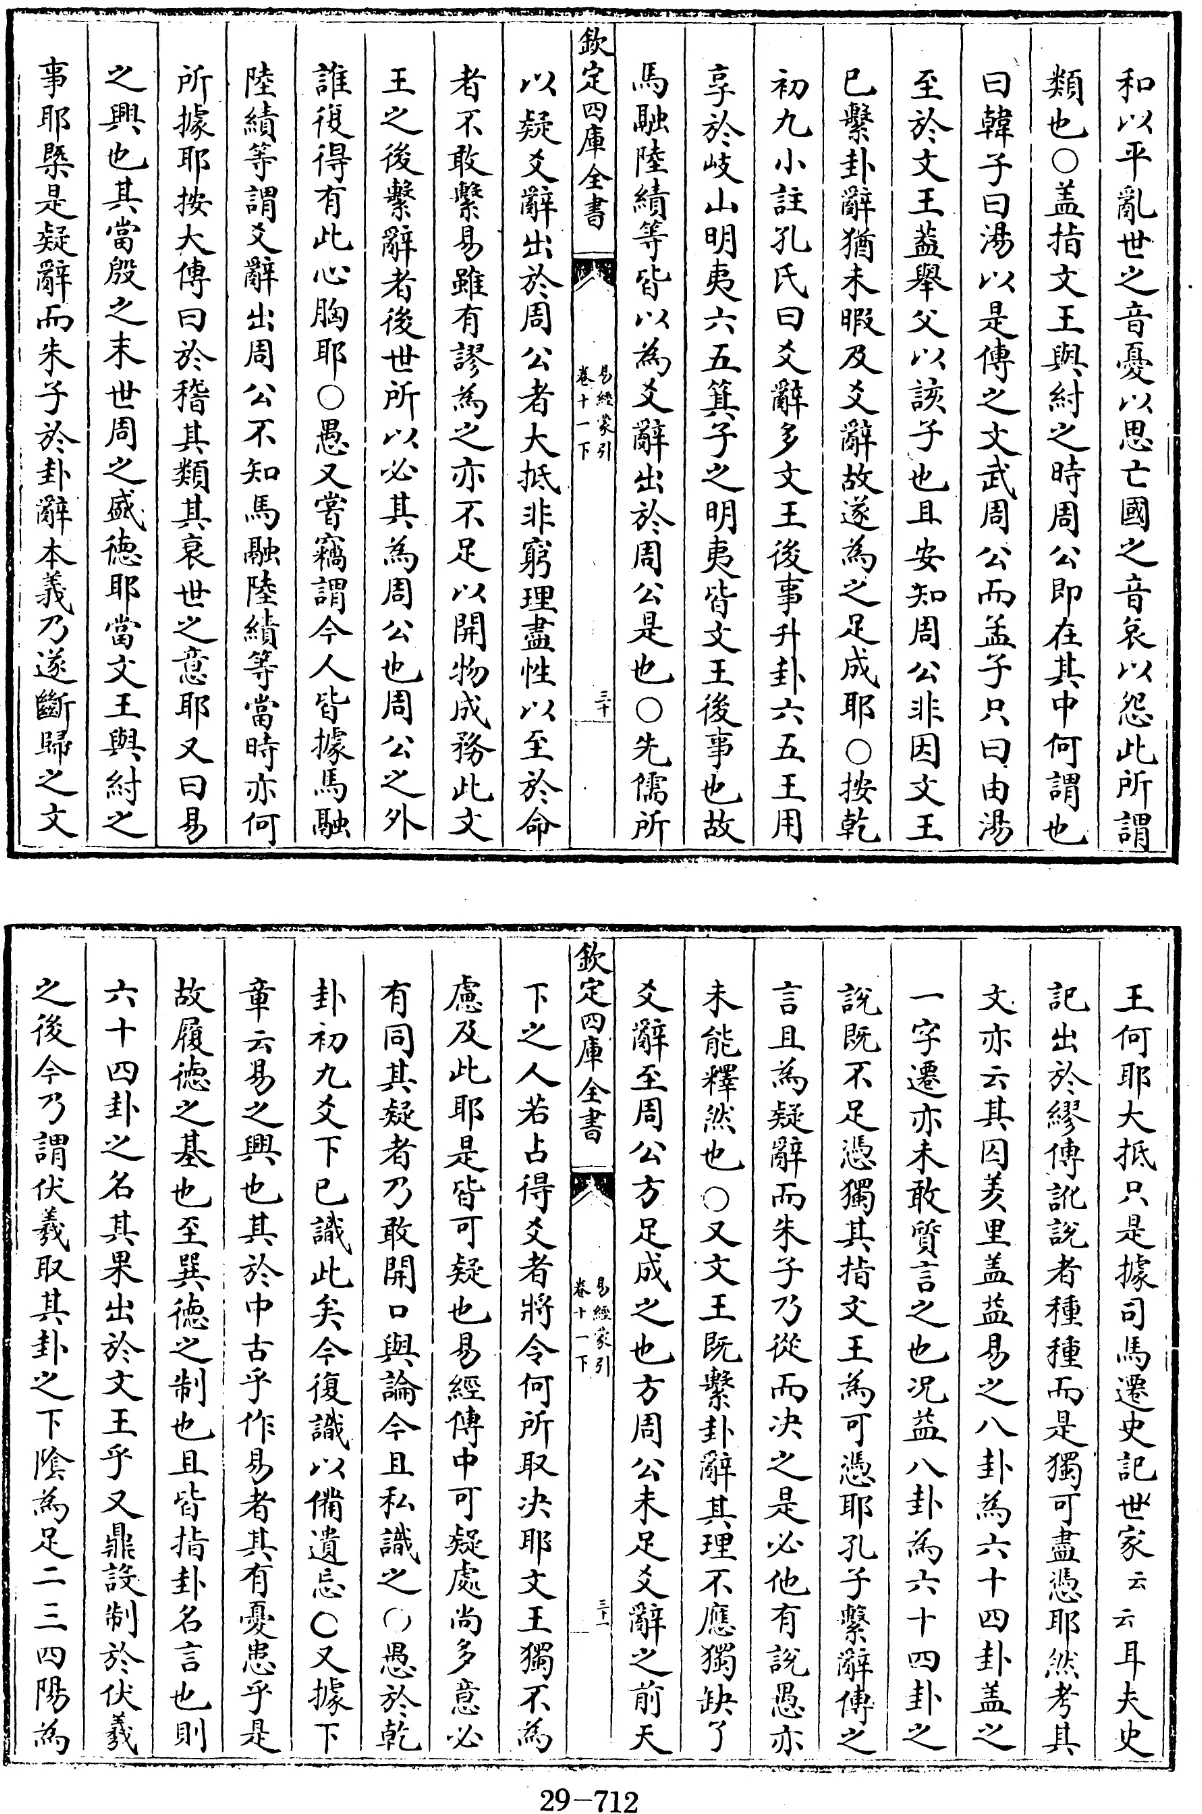 和以平亂世之音憂以思亡國之音哀以怨此所謂
類也○盖指文王與紂之時周公即在其中何謂也
曰韓子曰湯以是傳之文武周公而孟子只曰由湯
至於文王蓋舉父以該子也且安知周公非因文王
已繫卦辭猶未暇及爻辭故遂為之足成耶○按乾
初九小註孔氏曰爻辭多文王後事升卦六五王用
享於岐山明夷六五箕子之明夷皆文王後事也故
馬融陸績等皆以為爻辭出於周公是也○先儒所
欽定四庫全書
易經蒙引
卷十一下
三十
以疑爻辭出於周公者大抵非窮理盡性以至於命
者不敢繫易雖有謬為之亦不足以開物成務此文
王之後繫辭者後世所以必其為周公也周公之外
誰復得有此心胸耶○愚又嘗竊謂今人皆據馬融
陸績等謂爻辭出周公不知馬融陸績等當時亦何
所據耶按大傳曰於稽其類其衰世之意耶又曰易
之興也其當殷之末世周之盛德耶當文王與紂之
事耶槩是疑辭而朱子於卦辭本義乃遂斷歸之文
王何耶大抵只是據司馬遷史記世家云云耳夫史
記出於繆傳訛說者種種而是獨可盡憑耶然考其
文亦云其囚羑里盖益易之八卦為六十四卦盖之
一字遷亦未敢質言之也况益八卦為六十四卦之
說既不足憑獨其指文王為可憑耶孔子繫辭傳之
言且為疑辭而朱子乃從而决之是必他有說愚亦
未能釋然也○又文王既繫卦辭其理不應獨缺了
爻辭至周公方足成之也方周公未足爻辭之前天
欽定四庫全書
易經蒙引
卷十一下
三十一
下之人若占得爻者將令何所取决耶文王獨不為
慮及此耶是皆可疑也易經傳中可疑處尚多意必
有同其疑者乃敢開口與論今且私識之○愚於乾
卦初九爻下已識此矣今復識以備遺忘○又據下
章云易之興也其於中古乎作易者其有憂患乎是
故履德之基也至巽德之制也且皆指卦名言也則
六十四卦之名其果出於文王乎又鼎設制於伏羲
之後今乃謂伏羲取其卦之下陰為足二三四陽為
29-712